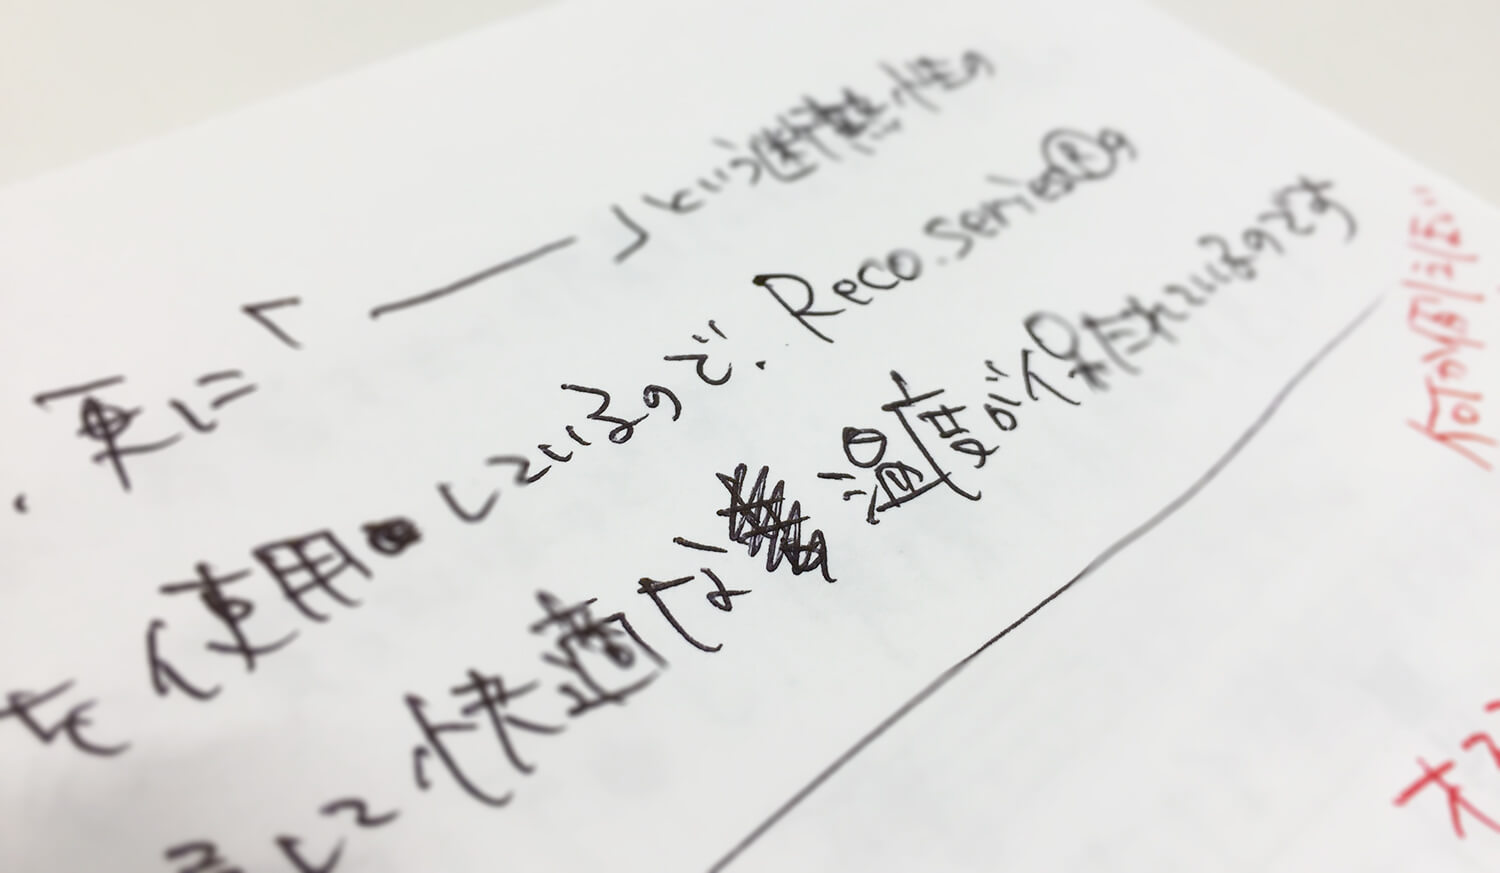 更に「 ― 」という断熱性の
を使用しているので、Reco.series®の
して快適な温度が保たれているのです
何の